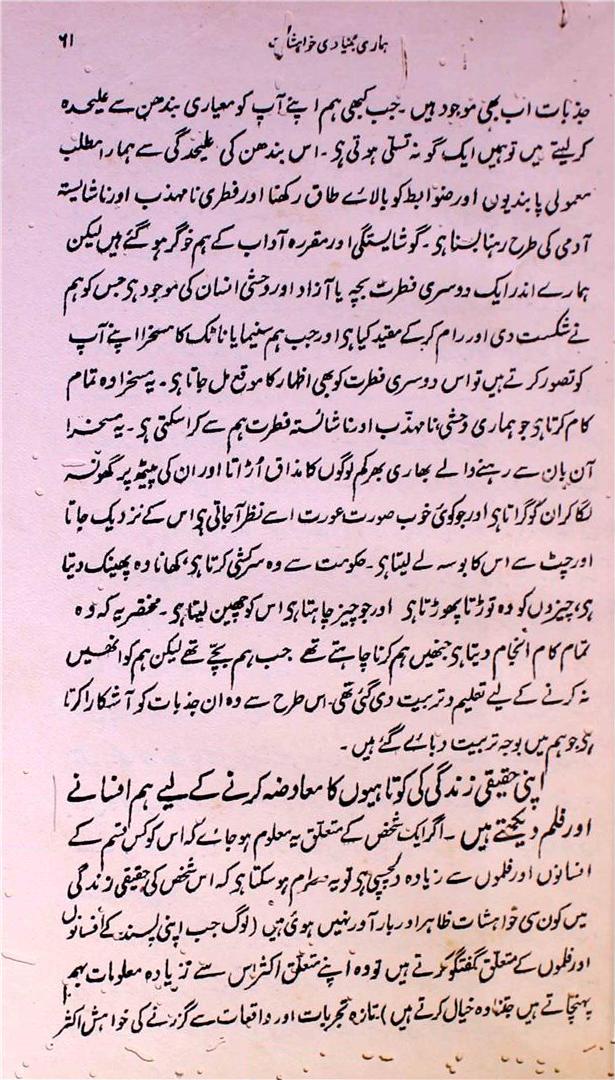 ہماری بنیادی خواہشات ۶۱
جذبات اب بھی موجود ہیں۔ جب کبھی ہم اپنے آپ کو معیاری بندھن سے علیحدہ
کر لیتے ہیں تو ہمیں ایک گونہ تسلی ہوتی ہی۔ اس بندھن کی علیحدگی سے ہمارا مطلب
معمولی پابندیوں اور ضوابط کو بالاے طاق رکھنا اور فطری نامہذب اور ناشایستہ
آدمی کی طرح رہنا بسنا ہی۔ گو شایستگی اور مقررہ آداب کے ہم خوگر ہو گئے ہیں لیکن
ہمارے اندر ایک دوسری فطرت بچہ یا آزاد اور وحشی انسان کی موجود ہی جس کو ہم
نے شکست دی اور رام کر کے مقید کیا ہی اور جب ہم سنیما یا ناٹک کا مسخرا اپنے آپ
کو تصور کرتے ہیں تو اس دوسری فطرت کو بھی اظہار کا موقع مل جاتا ہی۔ یہ مسخرا وہ تمام
کام کرتا ہی جو ہماری وحشی، نامہذب اور ناشائستہ فطرت ہم سے کرا سکتی ہی۔ یہ مسخرا
آن بان سے رہنے والے بھاری بھرکم لوگوں کا مذاق اُڑاتا اور ان کی پیٹھ پر گھونسہ
لگا کر ان کو گراتا ہی اور جو کوئ خوب صورت عورت اسے نظر آجاتی ہی اس کے نزدیک جاتا
اور چٹ سے اس کا بوسہ لے لیتا ہی۔ حکومت سے وہ سرکشی کرتا ہی، کھانا وہ پھینک دیتا
ہی، چیزوں کو وہ توڑتا پھوڑتا ہی اور جو چیز چاہتا ہی اس کو چھین لیتا ہی۔ مختصر یہ کہ وہ
تمام کام انجام دیتا ہی جنھیں ہم کرنا چاہتے تھے جب ہم بچّے تھے لیکن ہم کو انھیں
نہ کرنے کے لیے تعلیم و تربیت دی گئی تھی۔ اس طرح سے وہ ان جذبات کو آشکارا کرتا
ہی جو ہم میں بوجہ تربیت دباے گئے ہیں۔
اپنی حقیقی زندگی کی کوتاہیوں کا معاوضہ کرنے کے لیے ہم افسانے
اور فلم دیکھتے ہیں۔ اگر ایک شخص کے متعلق یہ معلوم ہو جاے کہ اس کو کس قسم کے
افسانوں اور فلموں سے زیادہ دلچسپی ہی تو یہ معلوم ہو سکتا ہی کہ اس شخص کی حقیقی زندگی
میں کون سی خواہشات ظاہر اور بارآور نہیں ہوئ ہیں (لوگ جب اپنی پسند کے افسانوں
اور فلموں کے متعلق گفتگو کرتے ہیں تو وہ اپنے متعلق اکثر اس سے زیادہ معلومات بہم
پہنچاتے ہیں جتنا وہ خیال کرتے ہیں) تازہ تجربات اور واقعات سے گزرنے کی خواہش اکثر